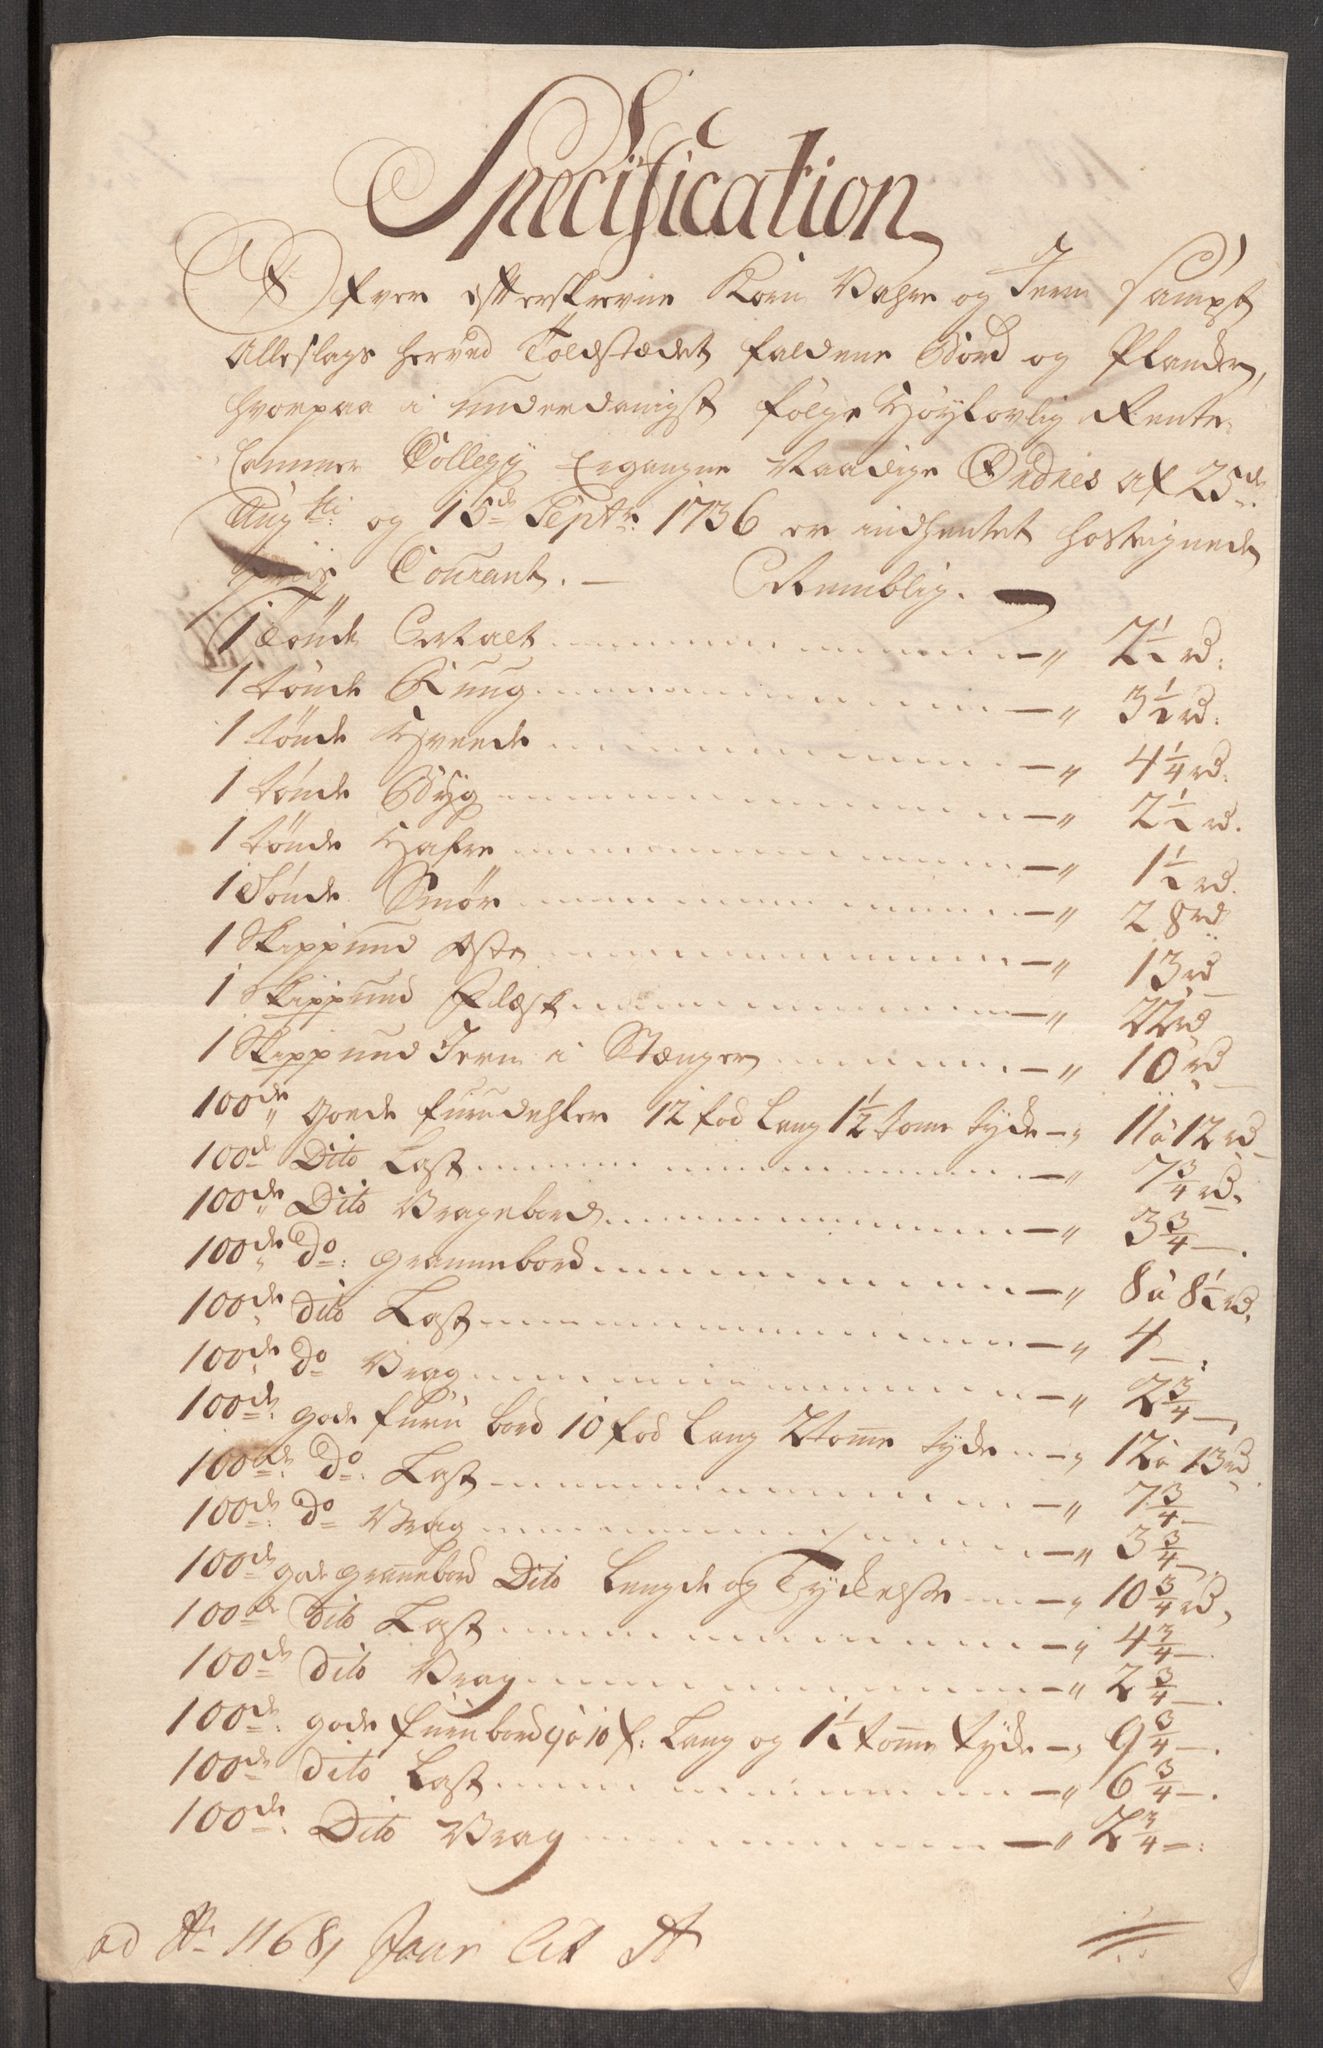 Specification
Ofver efterskrevne Korn Vahre og Jern sampt
Alleslags herved Toldstædet faldene Bord og Plancker,
hvorpaa i underdanigst følge Høylovlig Rente
Cammer Collegij Ergangne Naadige Ordres af 25de
Augsti: og 15de Septr: 1736 er indhentet hostegnede
Priis Courant. — Nemblig.
1 Tönde Malt — " 2½ rd:
1 tönde Ruug — " 3½ rd:
1 tönde Hveede — " 4¼ rd:
1 tönde Byg — " 2½ rd.
1 tönde Hafre — " 1½ rd.
1 Tönde Smør — " 28 rd
1 Skippund Oste — " 13 rd
1 Skippund Flesk — " 22 rd
1 Skippund Jern i Stænger — " 10 rd
100de goede furudehler 12 fod Lang 1½ tome tyche — " 11 à 12 rd
100de Dito Last — " 7¾ rd.
100de Dito Vragebord — " 3¾ —.
100de Do: Grannebord — " 8 à 8½ rd.
100de Dito Last — " 4 — :
100de Do Vrag — " 2¾ —,
100de: gode furu bord 10 fod Lang 2 tome tyche — " 12 à 13 rd.
100de: Do: Last — " 7¾ —
100de: Do Vrag — " 3¾ —.
100de gode granebord Dito Lengde og Tyckelse — " 10¾ rd,
100de Dito Last — " 4¾ —.
100de Dito Vrag — " 2¾ —.
100de: gode furubord 9 à 10 f: Lang og 1½ tomme tyche — " 9¾ —.
100de Dito Last — " 6¾ —.
100de: Dito Vrag — " 2¾ — :
ad No 1168, Jour Lit A